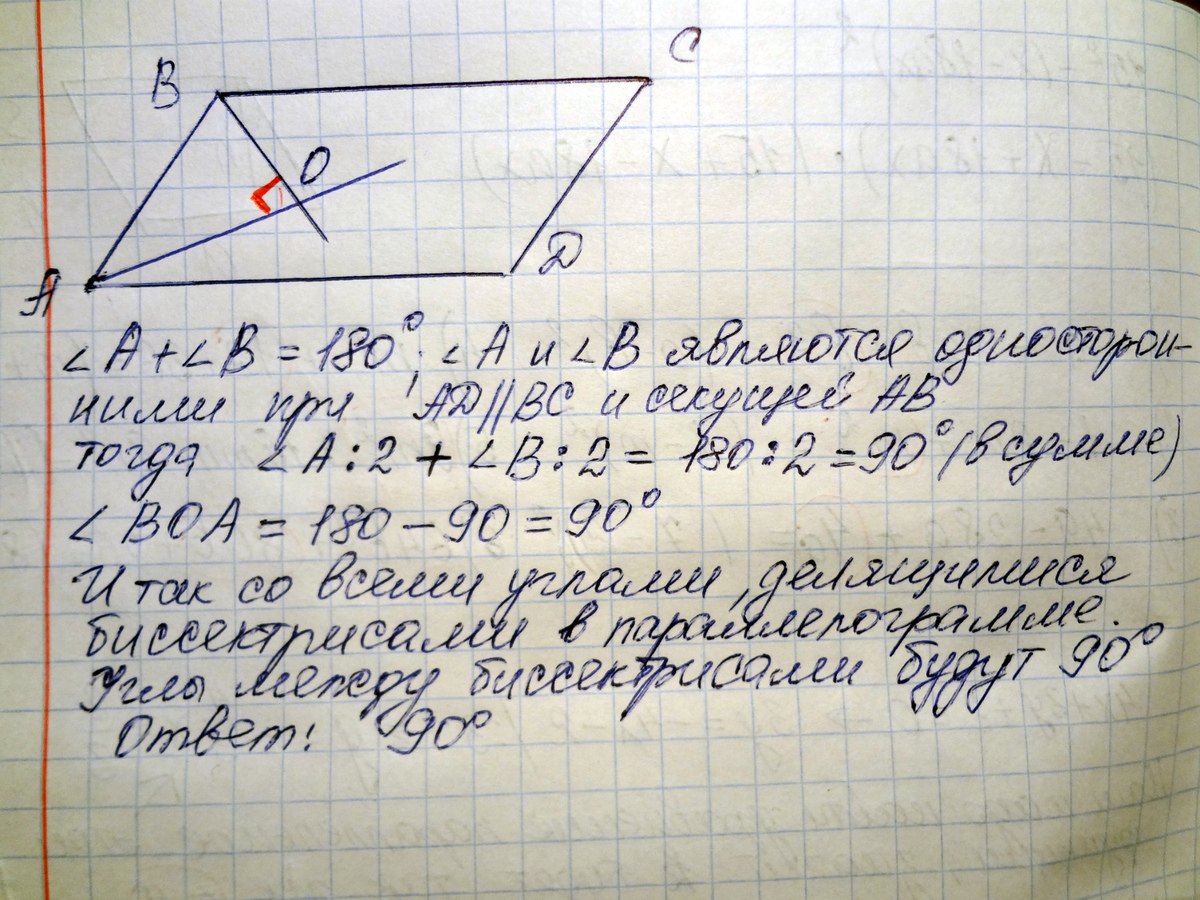 B
C
O
A
D
∠A + ∠B = 180°; ∠A и ∠B являются односторон-
ними при AD||BC и секущей AB
тогда ∠A : 2 + ∠B : 2 = 180 : 2 = 90° (в сумме)
∠BOA = 180 - 90 = 90°
И так со всеми углами, делящимися
биссектрисами в параллелограмме.
Углы между биссектрисами будут 90°
Ответ: 90°